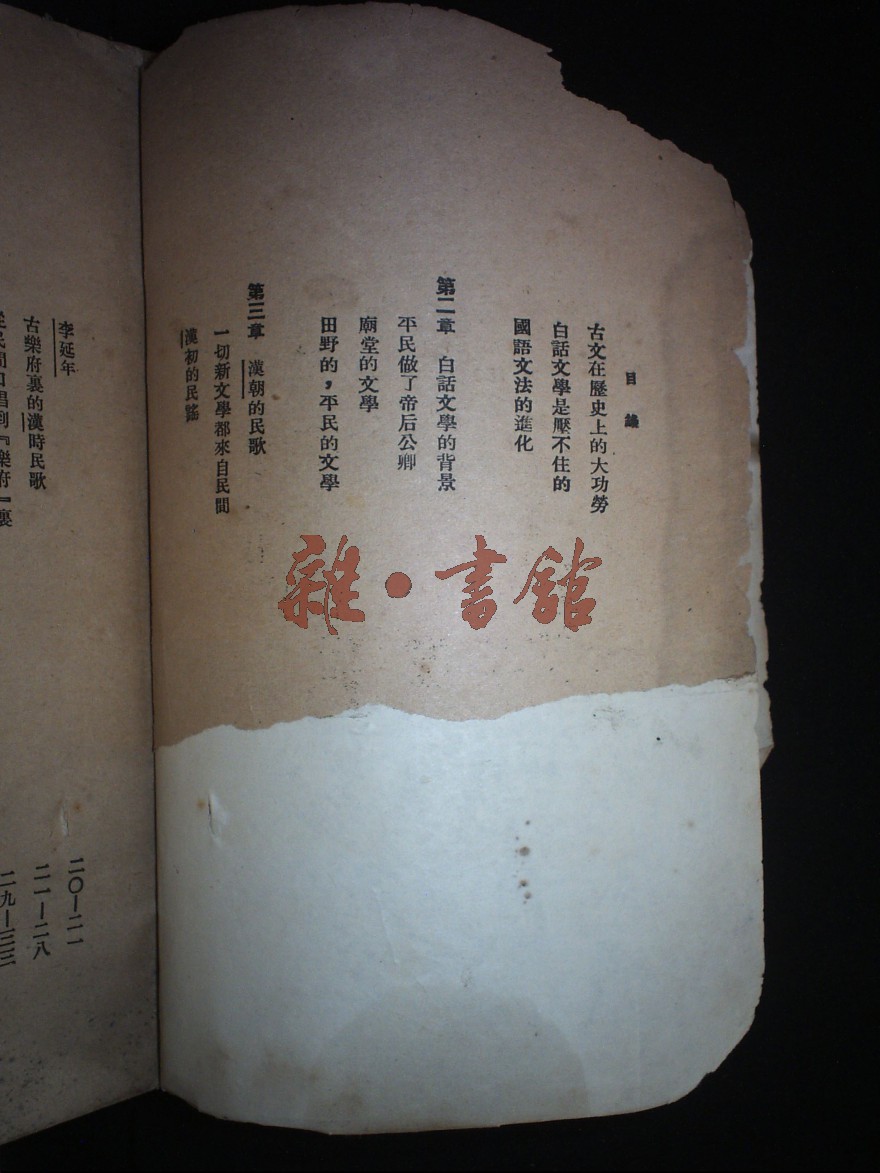 目錄
古文在歷史上的大功勞
白話文學是壓不住的
國語文法的進化
第二章 白話文學的背景
平民做了帝后公卿
廟堂的文學
田野的，平民的文學
第三章 漢朝的民歌
一切新文學都來自民間
漢初的民謠
李延年 二〇—二一
古樂府裏的漢時民歌 二一—二八
從民間口唱到『樂府』裏 二九—三三
雜·書館